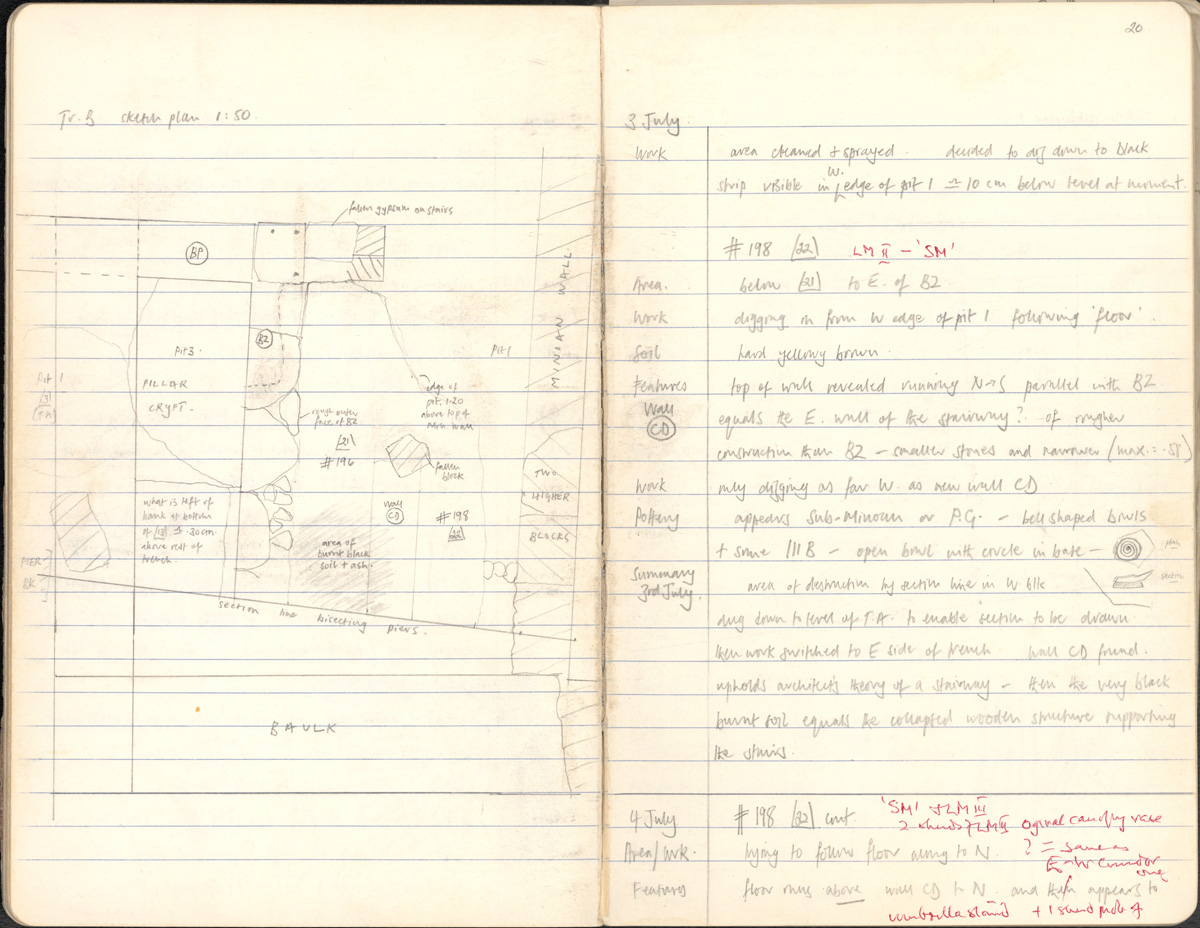 Tr. B sketch plan 1:50.
fallen gypsum on stairs
BP
BZ
Pit 3.
PILLAR
CRYPT.
Pit 1
MINIAN WALL
Pit 1
rough outer
face of BZ
edge of
pit. 1.20
above top of
wall
[21]
#196
fallen
block
TWO
HIGHER
BLOCKS
what is left of
bank at bottom
of [18] ≏ .30cm
above rest of
trench.
wall
CD
#198
[22]
area of
burnt black
soil + ash.
PIER
section line bisecting piers.
BAULK
20
3 July.
Work area cleaned + sprayed. decided to dig down to black
strip visible in W. edge of pit 1 ≏ 10 cm below level at moment.
#198 [22] LM II – 'SM'
Area. below [21] to E. of BZ
Work digging in from W edge of pit 1 following 'floor'.
Soil hard yellowy brown.
Features top of wall revealed running N→S parallel with BZ
Wall CD equals the E. wall of the stairway? of rougher
construction than BZ – smaller stones and narrower (max. = .58)
Work only digging as far W. as new wall CD
Pottery appears Sub-Minoan or P.G. – bell shaped bowls
+ some III B – open bowl with circle in base – plan
section
Summary
3rd July. area of destruction by section line in W blk
dug down to level of T.A. to enable section to be drawn
then work switched to E side of trench. Wall CD found.
upholds architect's theory of a stairway – then the very black
burnt soil equals the collapsed wooden structure supporting
the stairs.
4 July #198 [22] cont. 'SM' + LM III
2 sherds of LM II ogival canopy vase
Area/Work. trying to follow floor along to N. ? = same as
E–W corridor
one
Features floor runs above wall CD to N. and then appears to
+ 1 sherd prob of